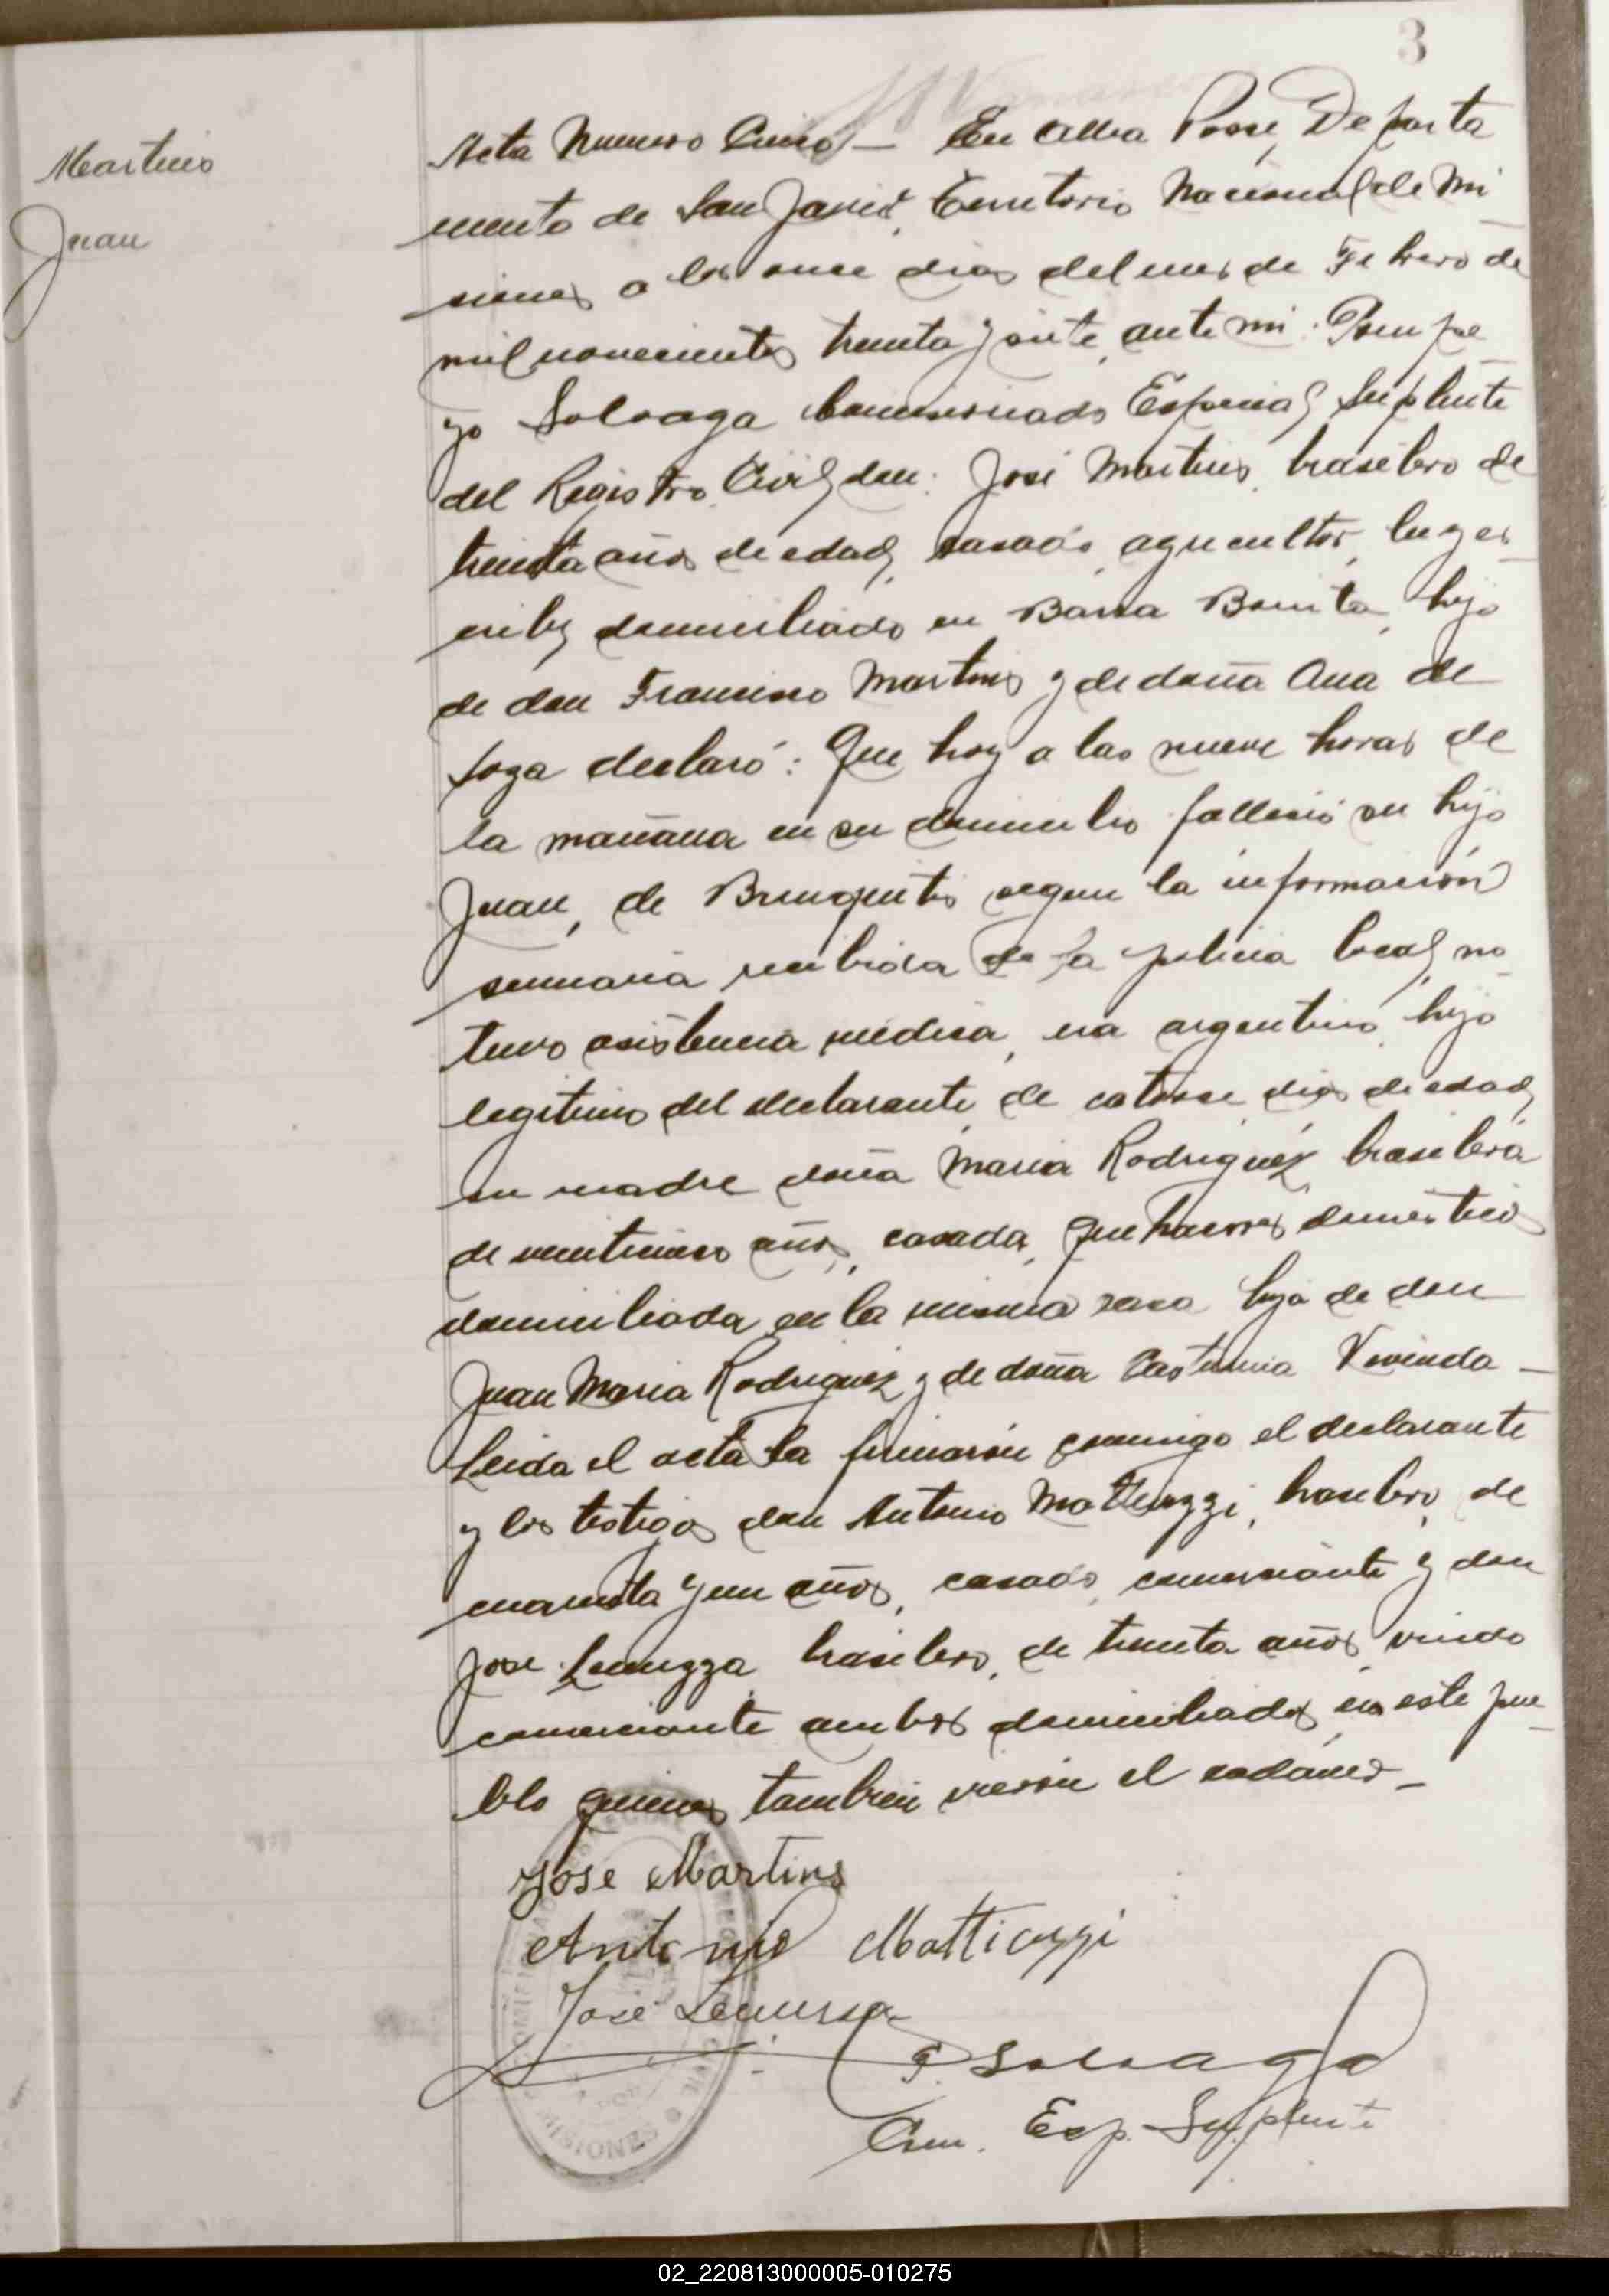 3
Martins
Juan
Acta Numero Cinco — En Alba Posse, Departa
mento de San Javier, Territorio Nacional de Mi
siones a los once dias del mes de Febrero de
mil novecientos treinta y siete, ante mi: Pompe
yo Solvaga Comisionado Especial Suplente
del Registro Civil, don: José Martins, brasilero de
treinta años de edad, casado, agricultor,
domiciliado en Barra Bonita, hijo
de don Francisco Martins y de doña Ana de
declaró: Que hoy a las nueve horas de
la mañana en su domicilio fallecio su hijo
Juan, de Bronquitis segun la información
sumaria recibida de la policia local, no
tuvo asistencia médica, era argentino, hijo
legitimo del declarante, de catorce dias de edad,
su madre doña Maria Rodriguez, brasilera
de veinticinco años, casada, quehaceres domesticos
domiciliada en la misma casa hija de don
Juan Maria Rodriguez y de doña —
Leida el acta la firmarón conmigo el declarante
y los testigos don Antonio Mattiuzzi, brasilero, de
cuarenta y un años, casado, comerciante y don
Jose Lemuzza, brasilero, de treinta años, viudo
comerciante ambos domiciliados en este pue
blo quienes tambien vierón el cadáver —
Jose Martins
Antonio Mattiuzzi
José
P. Solvaga
Com. Esp. Suplente
MISIONES
02_220813000005-010275